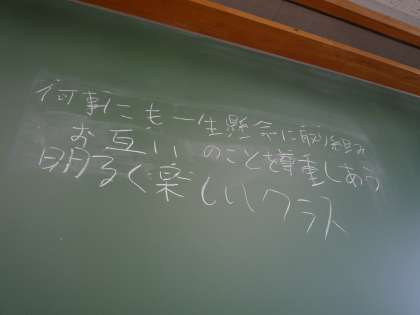 何事にも一生懸命に取り組み
お互いのことを尊重しあう
明るく楽しいクラス